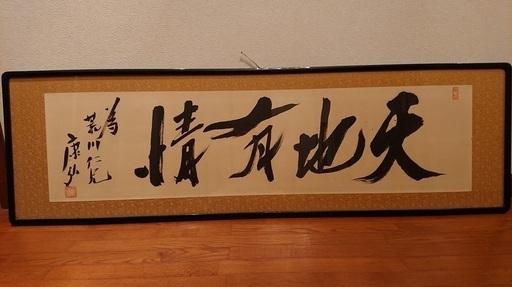 天地有情
為
荒川仁兄
康弘